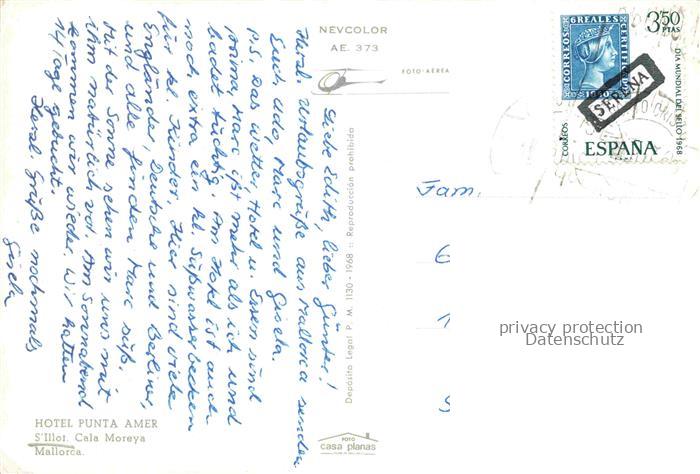 NEVCOLOR
AE. 373
FOTO-AEREA
Liebe Edith, lieber Günter!
Herzl. Urlaubsgrüße aus Mallorca senden
Euch Udo, Marc und Gisela.
P.S. Das Wetter, Hotel u. Essen sind
prima, Marc ißt mehr als ich und
badet tüchtig. Am Hotel ist auch
noch extra ein kl. Süßwasserbecken
für kl. Kinder. Hier sind viele
Engländer, Deutsche und Berliner,
und alle finden Marc süß.
Mit der Sonne sehen wir uns mit
ihm natürlich vor. Am Sonnabend
kommen wir wieder. Wir hatten
14 Tage gebucht.
Herzl. Grüße nochmals
Gisela
Depósito Legal P. M. 1130-1968 :: Reproducción prohibida
HOTEL PUNTA AMER
S'Illot. Cala Moreya
Mallorca.
FOTO
casa planas
CORREOS
6 REALES
CERTIFDO
1850
3'50
PTAS
DIA MUNDIAL DEL SELLO 1968
SERENA
CORREOS
ESPAÑA
Fam.
6
1
S
privacy protection
Datenschutz